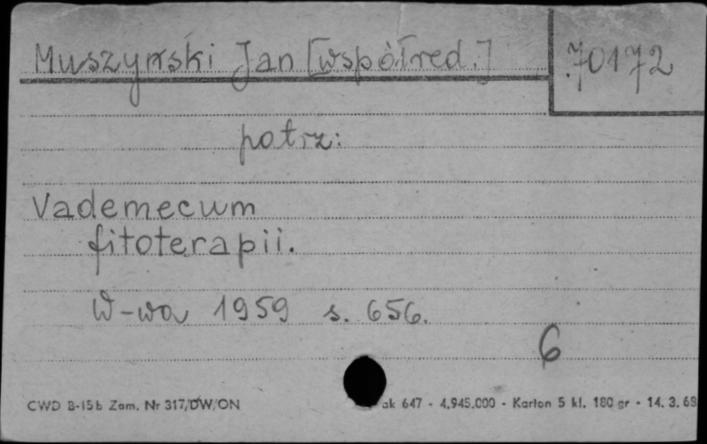 Muszyński Jan [współred.]
70172
potrz:
Vademecum
fitoterapii.
W-wa 1959 s. 656.
6
CWD B-15b Zam. Nr 317/DW/ON ak 647 - 4.945.000 - Karton 5 kl. 180 gr - 14. 3. 68